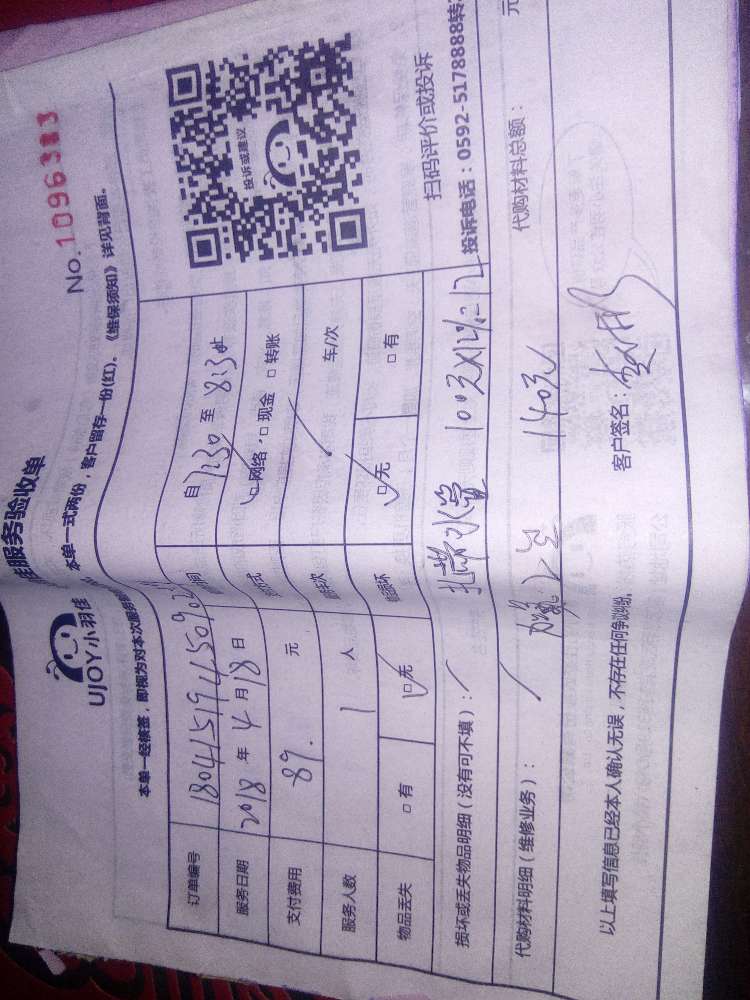 服务验收单
No.1096383
UJOY小羽佳
本单一式两份，客户留存一份(红)。《维保须知》详见背面。
本单一经核签，即视为对本次服务
订单编号
自7:30至8:30止
服务日期 2018年4月18日
网络 □现金 □转账
支付费用 89. 元
车/次
服务人数 1 人
物品丢失 □有 □无
□无 □有
投诉或建议
扫码评价或投诉
投诉电话：0592-5178888转
损坏或丢失物品明细（没有可不填）：
水管 100元X12%=12
代购材料明细（维修业务）：
140元
代购材料总额： 元
以上填写信息已经本人确认无误，不存在任何争议纠纷。
客户签名：